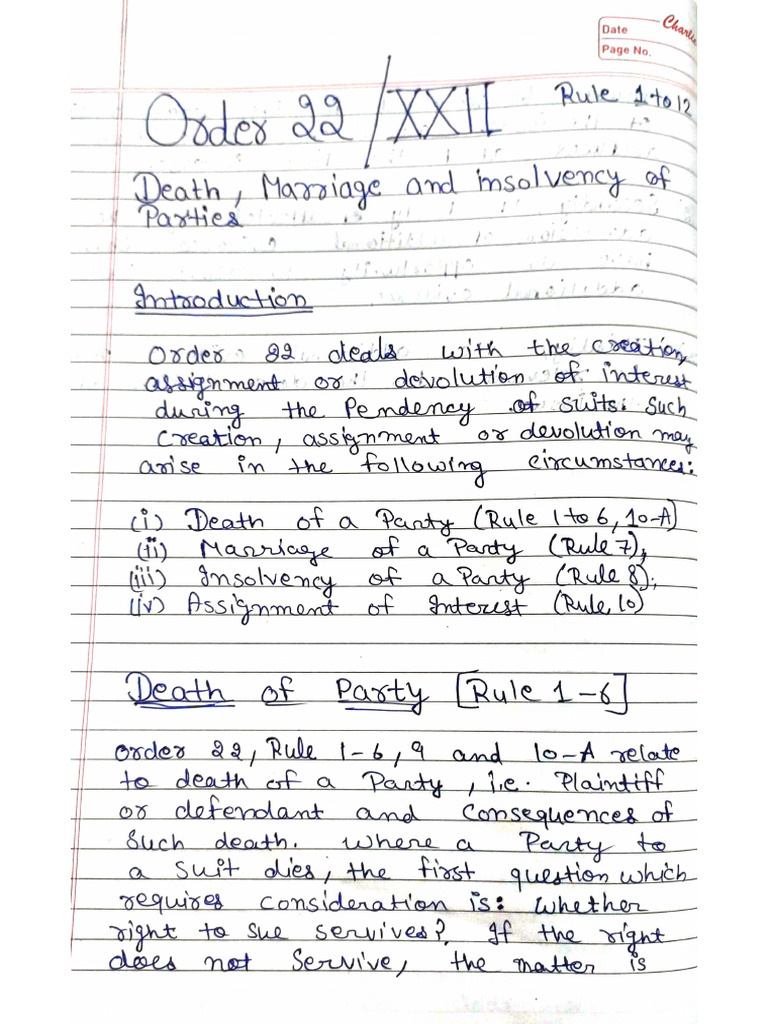 Date
Charlie
Page No.
Order 22/XXII
Rule 1 to 12
Death, Marriage and insolvency of
Parties
Introduction
Order 22 deals with the creation,
assignment or devolution of interest
during the Pendency of suits. Such
Creation, assignment or devolution may
arise in the following circumstances:
(i) Death of a Party (Rule 1 to 6, 10-A)
(ii) Marriage of a Party (Rule 7),
(iii) Insolvency of a Party (Rule 8);
(iv) Assignment of Interest (Rule 10)
Death of Party [Rule 1-6]
Order 22, Rule 1-6, 9 and 10-A relate
to death of a Party, i.e. Plaintiff
or defendant and Consequences of
Such death. Where a Party to
a suit dies, the first question which
requires consideration is: Whether
right to sue servives? If the right
does not Servive, the matter is